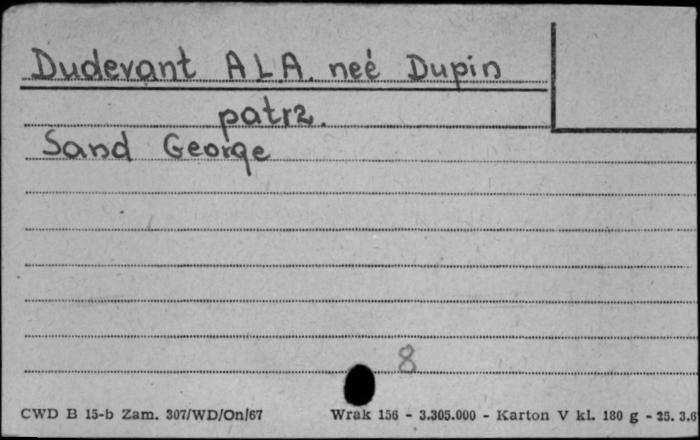 Dudevant A L.A. neé Dupin
patrz.
Sand George
8
CWD B 15-b Zam. 307/WD/On/67 Wrak 156 - 3.305.000 - Karton V kl. 180 g - 25. 3.6